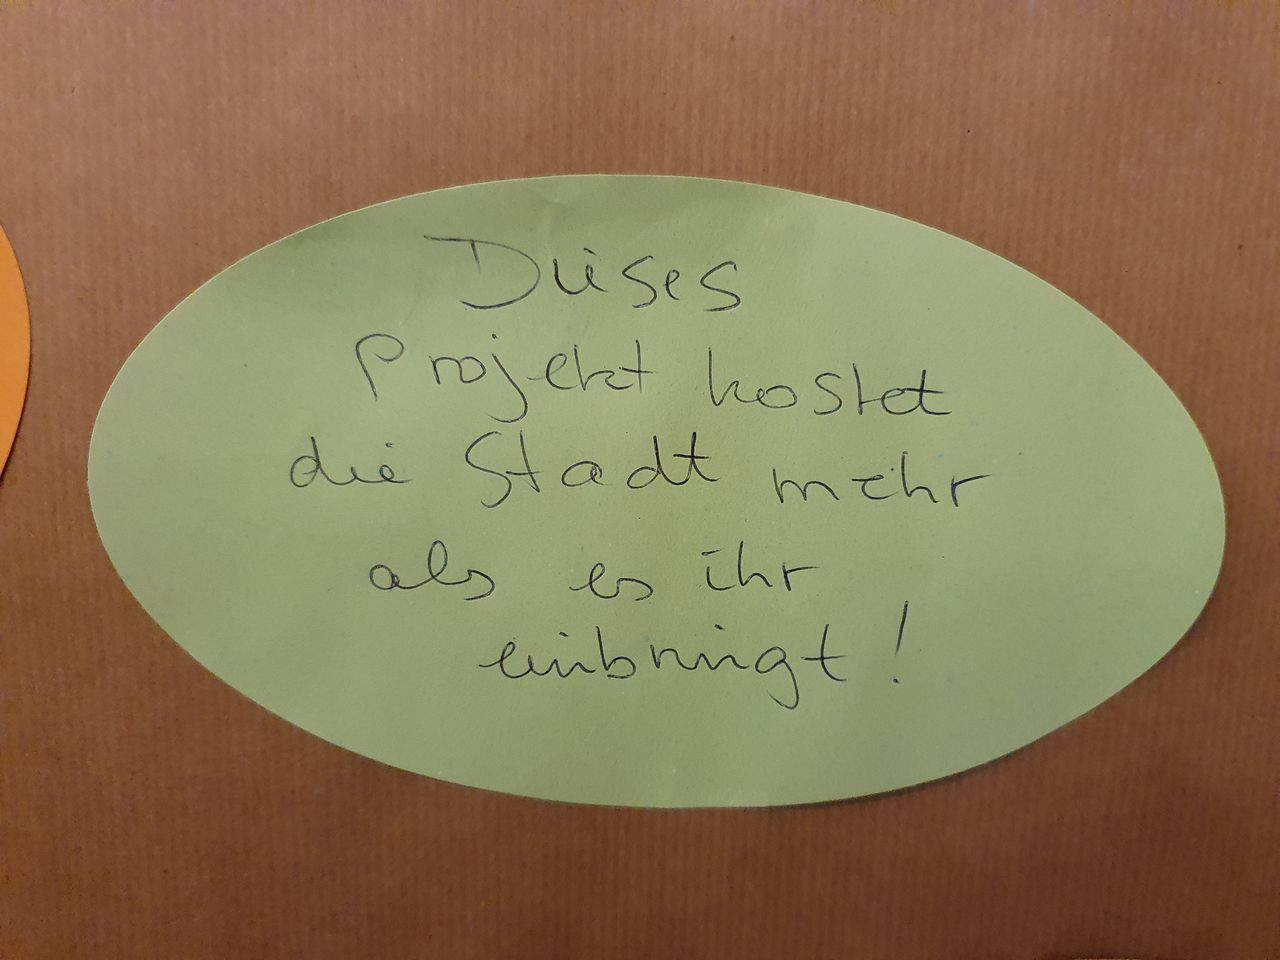 Dieses
Projekt kostet
die Stadt mehr
als es ihr
einbringt!